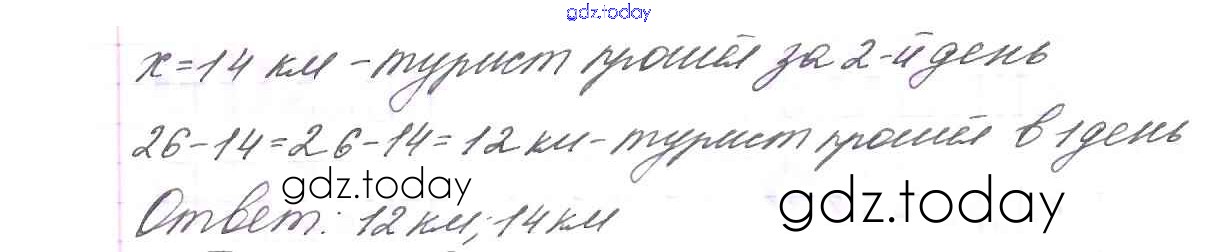 gdz.today
x=14 км – турист прошёл за 2-й день
26-14=26-14=12 км – турист прошёл в 1 день
gdz.today
gdz.today
Ответ: 12 км; 14 км